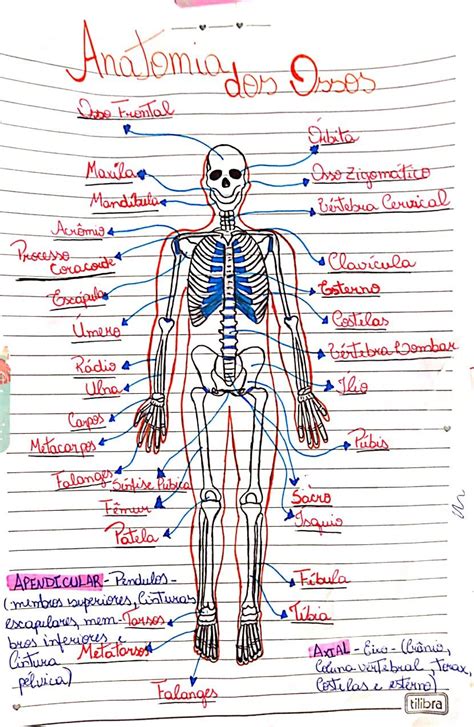 Anatomia dos Ossos
Osso Frontal
Órbita
Maxila
Osso Zigomático
Mandíbula
Vértebra Cervical
Acrômio
Processo
Coracoide
Clavícula
Escápula
Esterno
Úmero
Costelas
Vértebra Lombar
Rádio
Ulna
Ílio
Carpos
Metacarpos
Púbis
Falanges
Sínfise Púbica
Sacro
Fêmur
Ísquio
Patela
APENDICULAR - Pendulos -
(membros superiores, cinturas
escapulares, mem-
bros inferiores e
cintura
pélvica)
Fíbula
Tarsos
Tíbia
Metatarsos
AXIAL - Eixo - (Crânio,
coluna vertebral, Torax,
Costelas e esterno)
Falanges
tilibra